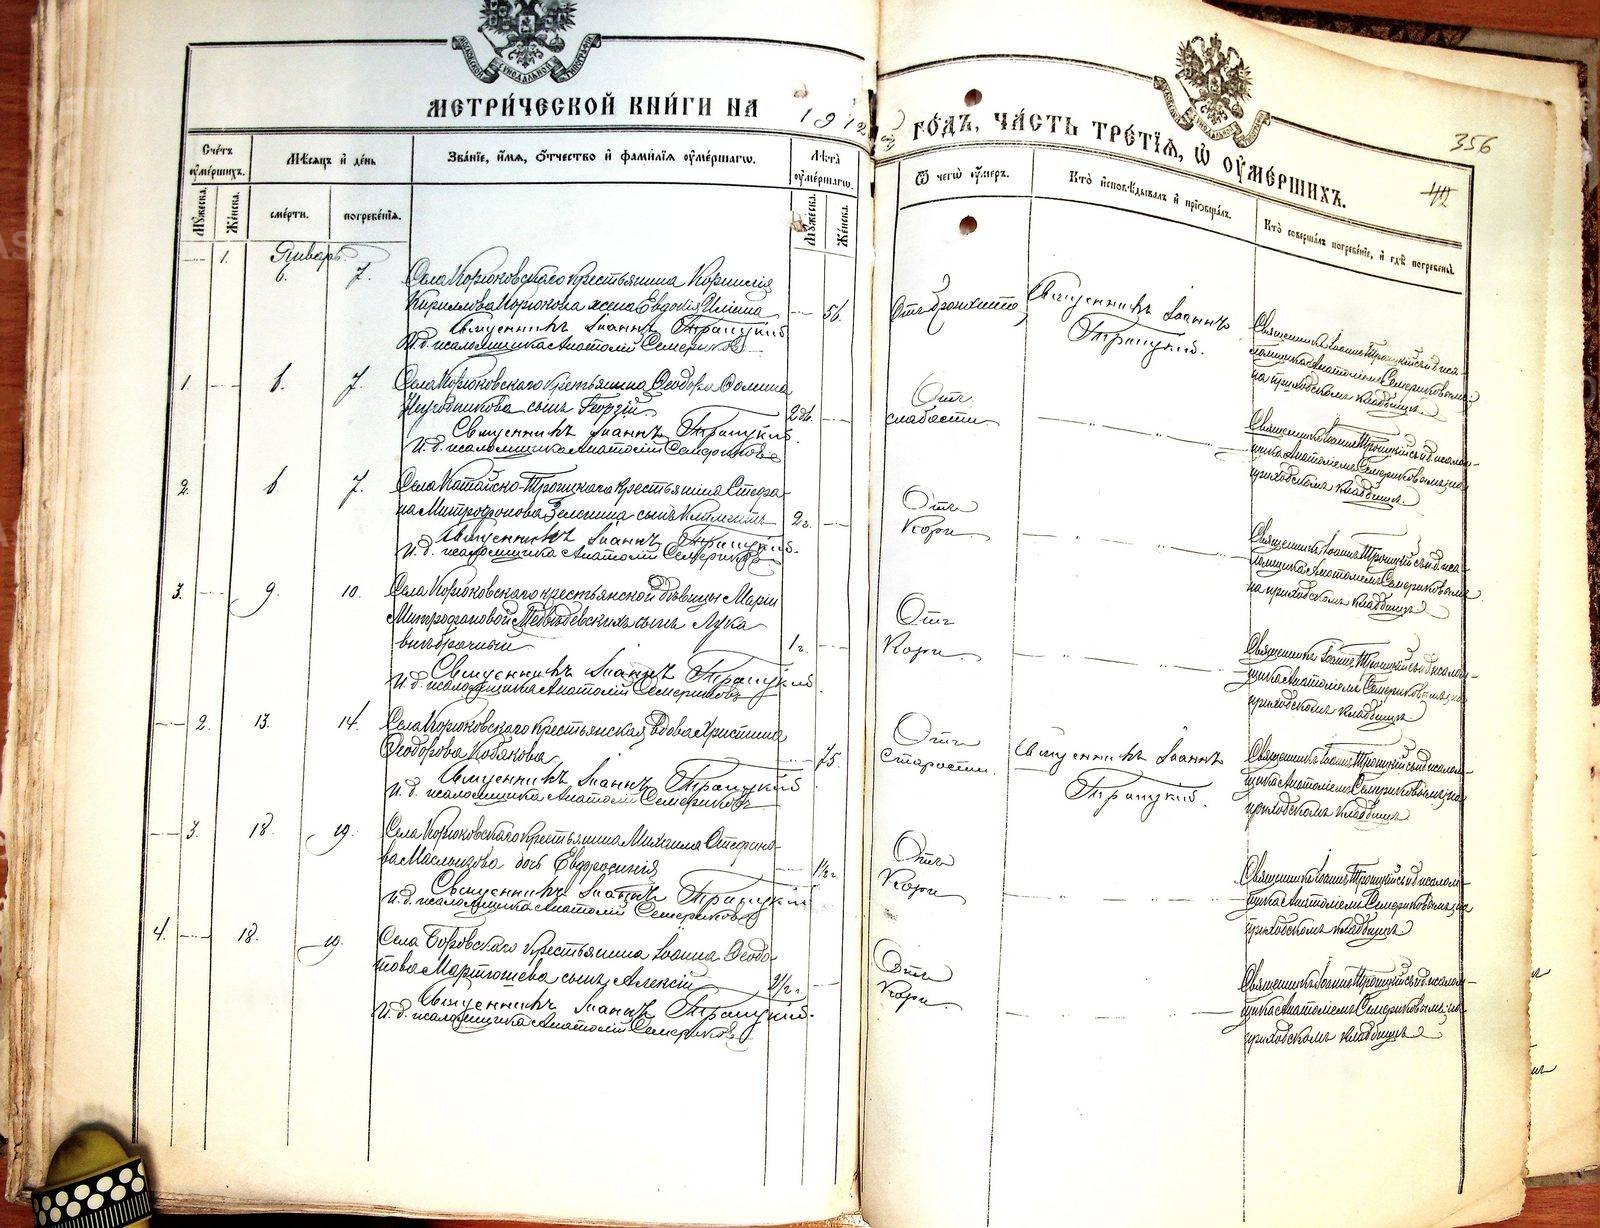 МЕТРИ́ЧЕСКОЙ КНИ́ГИ НА 1912 ГО́ДЪ, ЧА́СТЬ ТРЕ́ТІЯ, Ѡ ОУМЕ́РШИХЪ.
356
42
Сче́тъ оумершихъ.
Мужеска.
Же́нска.
Мѣ́сяцъ и день
сме́рти.
погребе́нія.
Зва́ніе, и́мя, о́тчество и фами́лія оуме́ршагѡ.
Лѣ́та оуме́ршагѡ.
Му́жеска.
Же́нска.
Ѿ чегѡ̀ оу́меръ.
Кто̀ и҆сповѣ́дывалъ и прїобща́лъ.
Кто̀ соверша́лъ погребе́ніе, и гдѣ̀ погребены̀.
Январь
1.
6.
7.
Села Корюковскаго крестьянина
Кириллова Корюкова жена Евдокія
56.
Священникъ Іоаннъ Троицкій
И. д. псаломщика Анатолій Семериковъ
Отъ бронхита
Священникъ Іоаннъ
Троицкій.
Священникъ Іоаннъ Троицкій съ и д. пса-
ломщика Анатоліемъ Семериковымъ
на приходскомъ кладбищѣ.
1.
6.
7.
Села Корюковскаго крестьянина Ѳеодора
сынъ Георгій
Священникъ Іоаннъ Троицкій.
И. д. псаломщика Анатолій Семериковъ
Отъ
слабости
Священникъ Іоаннъ Троицкій съ и д. псалом-
щика Анатоліемъ Семериковымъ на
приходскомъ кладбищѣ.
2.
6.
7.
Села Катайско-Троицкаго крестьянина Стефа-
на Митрофанова Зеленина сынъ
2 г.
Священникъ Іоаннъ Троицкій.
И. д. псаломщика Анатолій Семериковъ
Отъ
Кори.
Священникъ Іоаннъ Троицкій съ и д. пса-
ломщика Анатоліемъ Семериковымъ
на приходскомъ кладбищѣ
3.
9.
10.
Села Корюковскаго крестьянской дѣвицы Маріи
Митрофановой Медвѣдевскихъ сынъ Лука
внѣбрачный
1 г.
Священникъ Іоаннъ Троицкій.
И. д. псаломщика Анатолій Семериковъ
Отъ
Кори.
Священникъ Іоаннъ Троицкій съ и д. псалом-
щика Анатоліемъ Семериковымъ на
приходскомъ кладбищѣ
2.
13.
14.
Села Корюковскаго крестьянская вдова Христина
Ѳеодорова Кобякова
75.
Священникъ Іоаннъ Троицкій
И. д. псаломщика Анатолій Семериковъ
Отъ
старости.
Священникъ Іоаннъ
Троицкій.
Священникъ Іоаннъ Троицкій съ и д. псалом-
щика Анатоліемъ Семериковымъ на
приходскомъ кладбищѣ
3.
18.
19.
Села Корюковскаго крестьянина Михаила Стефано-
ва дочь Евфросинія
1½ г.
Священникъ Іоаннъ Троицкій
И. д. псаломщика Анатолій Семериковъ
Отъ
Кори
Священникъ Іоаннъ Троицкій съ и д. псалом-
щика Анатоліемъ Семериковымъ на
приходскомъ кладбищѣ
4.
18.
19.
Села Боровскаго крестьянина Іоанна Ѳеодо-
това Мартюшева сынъ Алексій
2½ г.
Священникъ Іоаннъ Троицкій.
И. д. псаломщика Анатолій Семериковъ
Отъ
Кори
Священникъ Іоаннъ Троицкій съ и д. псалом-
щика Анатоліемъ Семериковымъ на
приходскомъ кладбищѣ